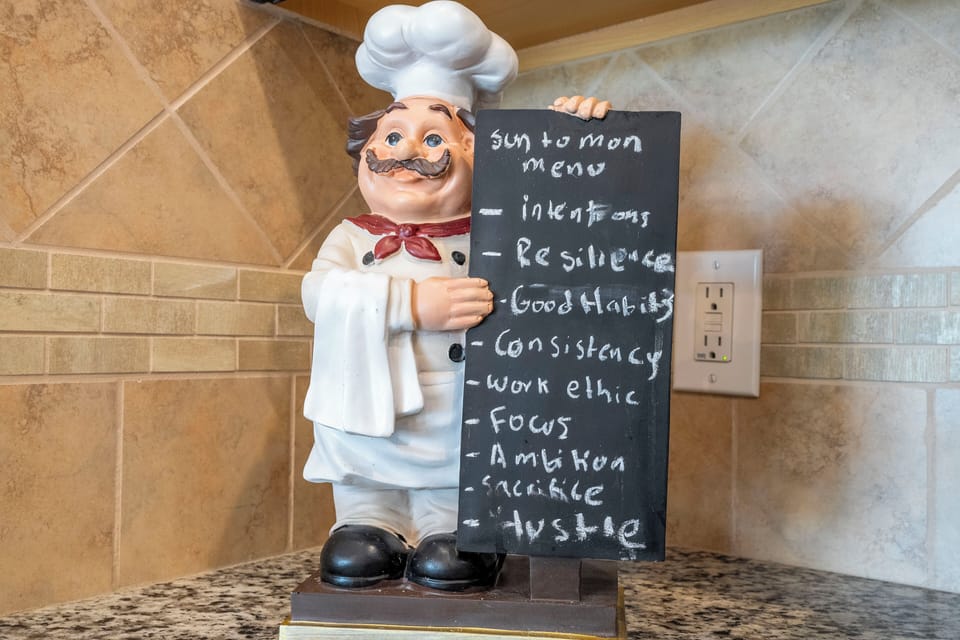 sun to mon
menu
- intentions
- Resilience
- Good Habits
- Consistency
- work ethic
- Focus
- Ambition
- Sacrifice
- Hustle